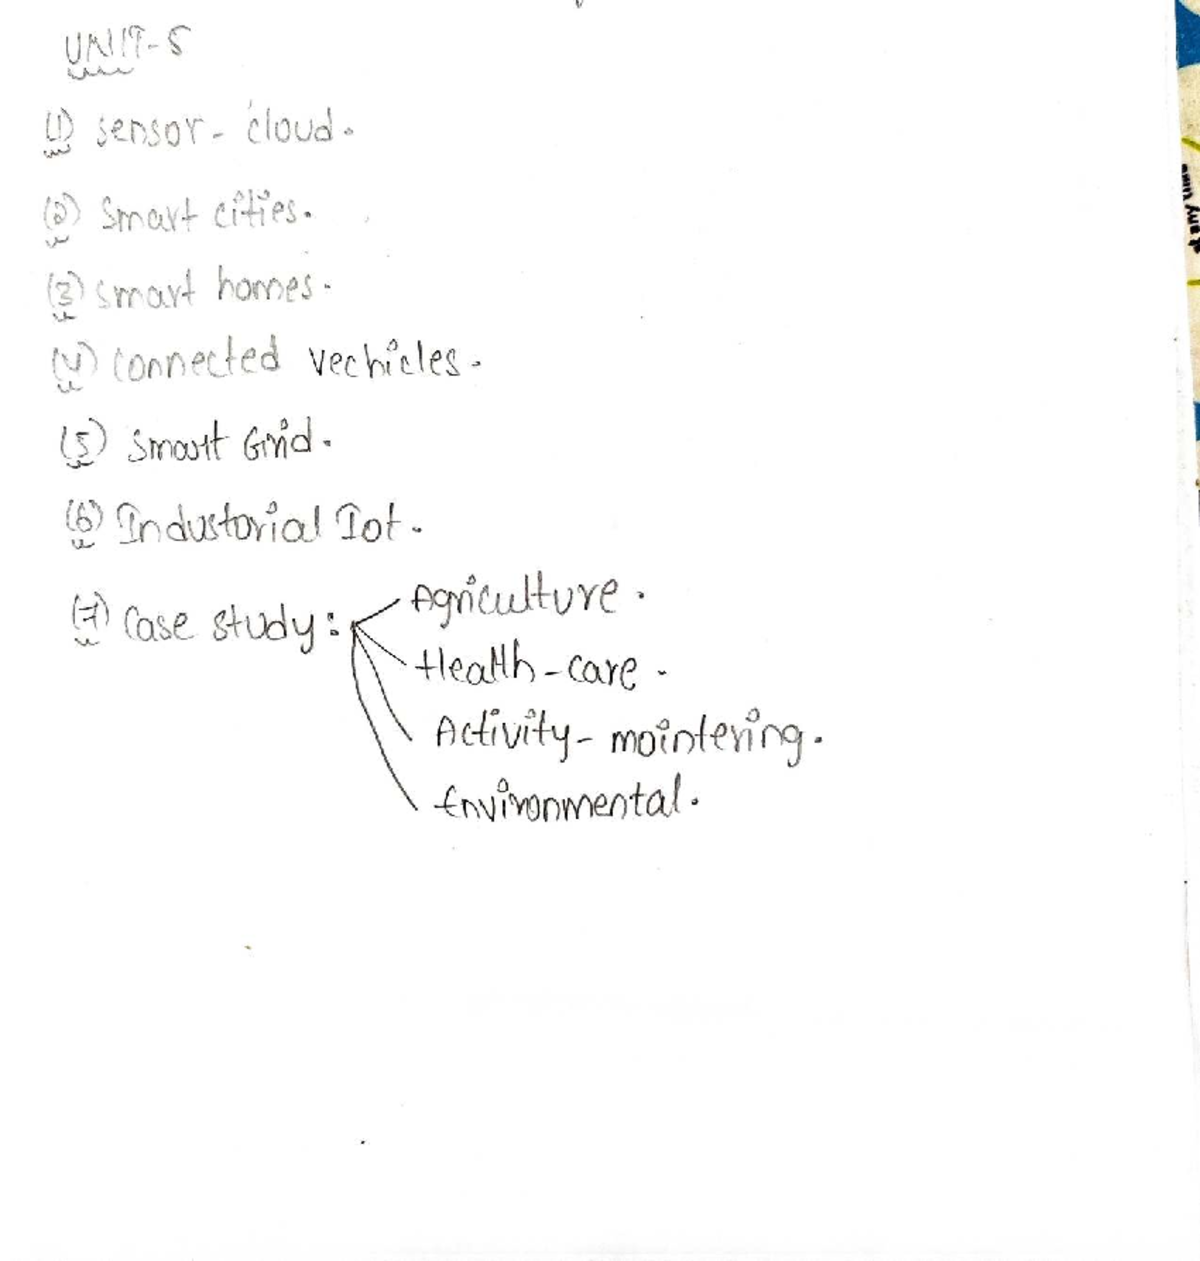 UNIT-5
(1) sensor - cloud.
(2) Smart cities.
(3) smart homes.
(4) connected vechicles.
(5) Smart Grid.
(6) Industorial Iot.
(7) Case study:
Agriculture.
Health-care.
Activity-mointering.
Environmental.
at any time